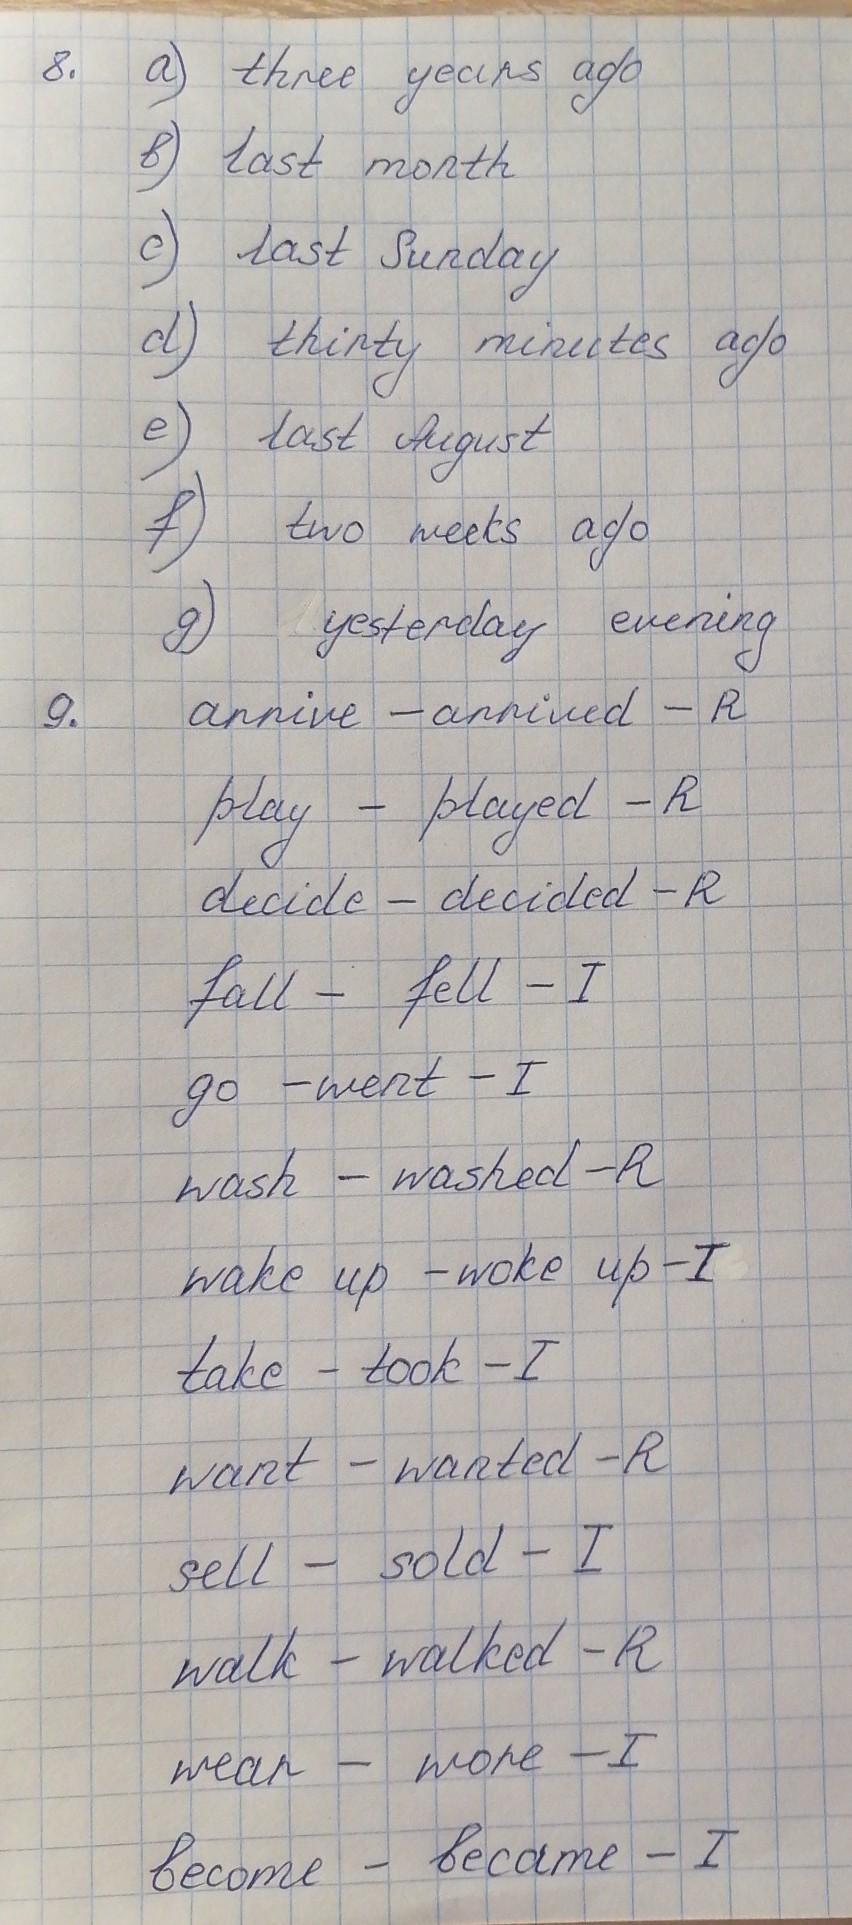 8. a) three years ago
b) last month
c) last Sunday
d) thirty minutes ago
e) last August
f) two weeks ago
g) yesterday evening
9. arrive - arrived - R
play - played - R
decide - decided - R
fall - fell - I
go - went - I
wash - washed - R
wake up - woke up - I
take - took - I
want - wanted - R
sell - sold - I
walk - walked - R
wear - wore - I
become - became - I